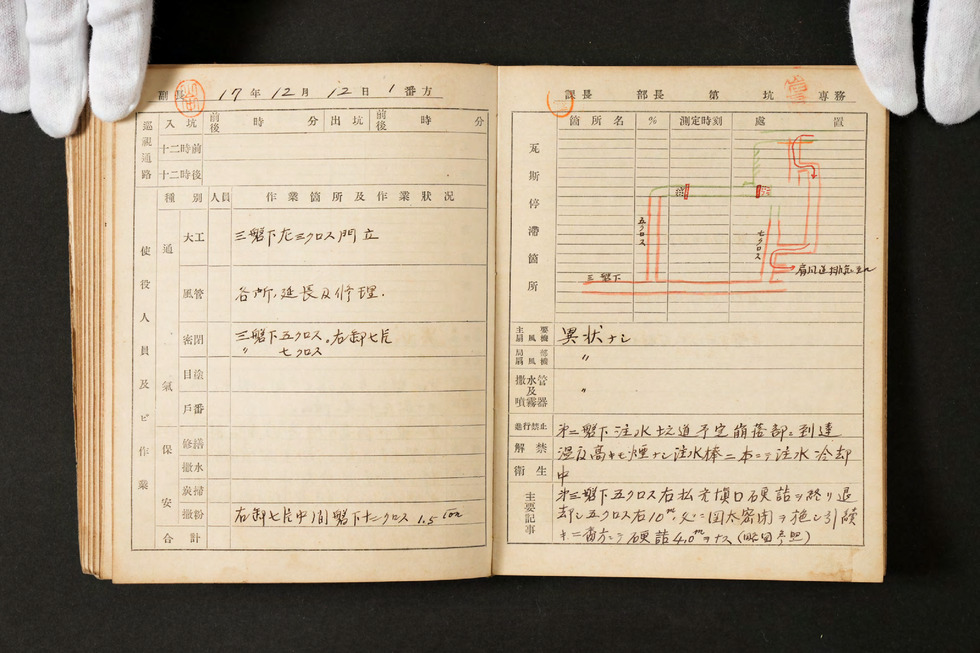 副長 17年12月12日 1番方
巡視通路 入坑 前後 時 分 出坑 前後 時 分
十二時前
十二時後
使役人員及ビ作業
種別 人員 作業箇所及作業狀況
通氣
大工 三盤下左三クロス門立
風管 各所、延長及修理.
密閉 三盤下五クロス。右卸七片
〃 七クロス
目塗
戸番
保安
修繕
撒水
炭掃
撒粉 右卸七片中ノ間盤下十二クロス 1.5 ton
合計
課長 部長 第 坑 專務
瓦斯停滯箇所
箇所名 % 測定時刻 處置
五クロス
七クロス
三盤下
主要扇風機 異状ナシ
局部扇風機 〃
撒水管及噴霧器 〃
進行禁止
解禁
衛生
第二盤下注水坑道予定崩落部ニ到達
温度高キモ煙ナシ注水棒二本ニテ注水冷却
中
主要記事
第三盤下五クロス右払 口硬詰ヲ終リ退
却シ五クロス右10m 密閉ヲ施シ引續
キ二番方ニテ硬詰4,0mヲナス(略図参照)